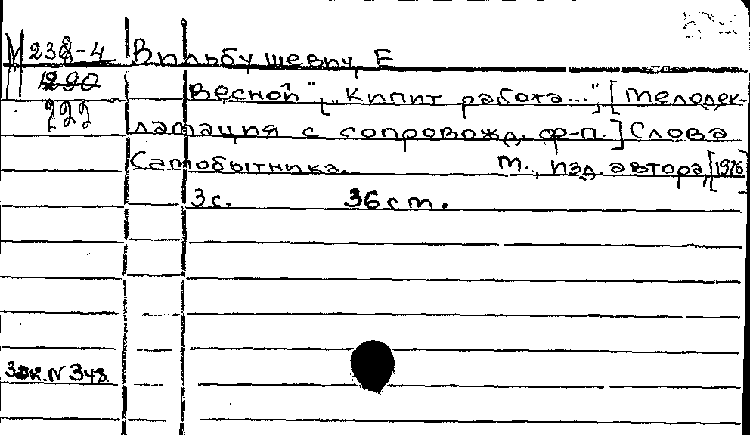 М 238-4 Вильбушевич, Е
290
222
Весной", "Кипит работа...", [Мелодек-
ламация с сопровожд. ф-п.] Слова
Самобытника. М., изд. автора, [1926]
3 с. 36 см.
Зак. N 348